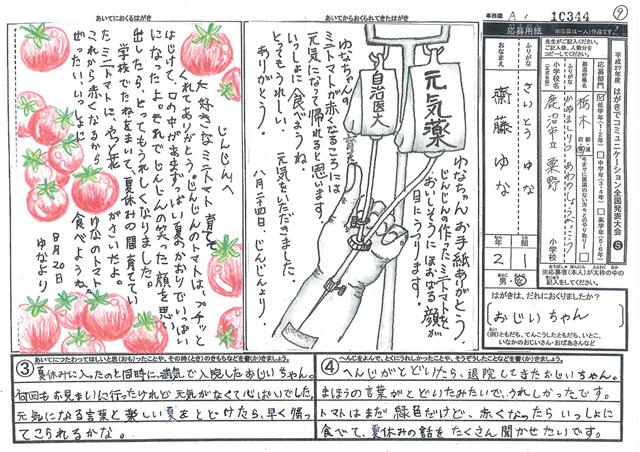 ⑨
事務欄 A 10344
応募用紙
※応募は一人1作品です。
先生がご記入ください。
ご記入後、人数分を
コピーしてください。
平成27年度 はがきでコミュニケーション全国発表大会 S
応募部門
低学年(1~2年)
中学年(3・4年)
高学年(5・6年)
ふりがな
さいとう ゆな
おなまえ
齋藤 ゆな
都道府県名
栃木
小学校名
(正式名称)
鹿沼市立 粟野 小学校
2 年 1 組
男・女
※応募者(本人)が太枠の中の
記入をしてください。
はがきは、だれにおくりましたか?
( おじいちゃん )
(例)ともだち、てんこうしたともだち、いとこ、
いなかのおじいさん・おばあさんなど
あいてからおくられてきたはがき
元気薬
自治医大
ゆなちゃんお手紙ありがとう
じんじんの作ったミニトマトを
おいしそうにほおばる顔が
目にうつります。
ゆなちゃんの
ミニトマトが赤くなるころには
元気になって帰れると思います。
いっしょに食べようね。
とってもうれしい元気をいただきました。
ありがとう。
八月二十四日、じんじんより
あいてにおくるはがき
じんじんへ
大好きなミニトマト育て
くれてありがとう。じんじんのトマトは、プチッと
はじけて、口の中があまずっぱい夏のかおりでいっぱい
になったよ。それでじんじんの笑った顔を思い
出したら、とってもうれしくなりました。
学校でたねをまいて、夏休みの間育ててい
たミニトマトに、やっと花がさいたよ。
これから赤くなるから、ゆなのトマト
ぜったい、いっしょに食べようね。
8月20日
ゆなより
あいてにつたわってほしいと思(おも)ったことや、その時(とき)のきもちなどを書(か)きましょう。
③ 夏休みに入ったのと同時に、病気で入院したおじいちゃん。
何回もお見まいに行ったけれど元気がなくて心ぱいでした。
元気になる言葉と楽しい夏をとどけたら、早く帰っ
てこられるかな。
へんじをよんで、とくにうれしかったことや、そうぞうしたことなどを書(か)きましょう。
④ へんじがとどいたら、退院してきたおじいちゃん。
まほうの言葉がとどいたみたいで、うれしかったです。
トマトはまだ緑色だけど、赤くなったらいっしょに
食べて、夏休みの話をたくさん聞かせたいです。